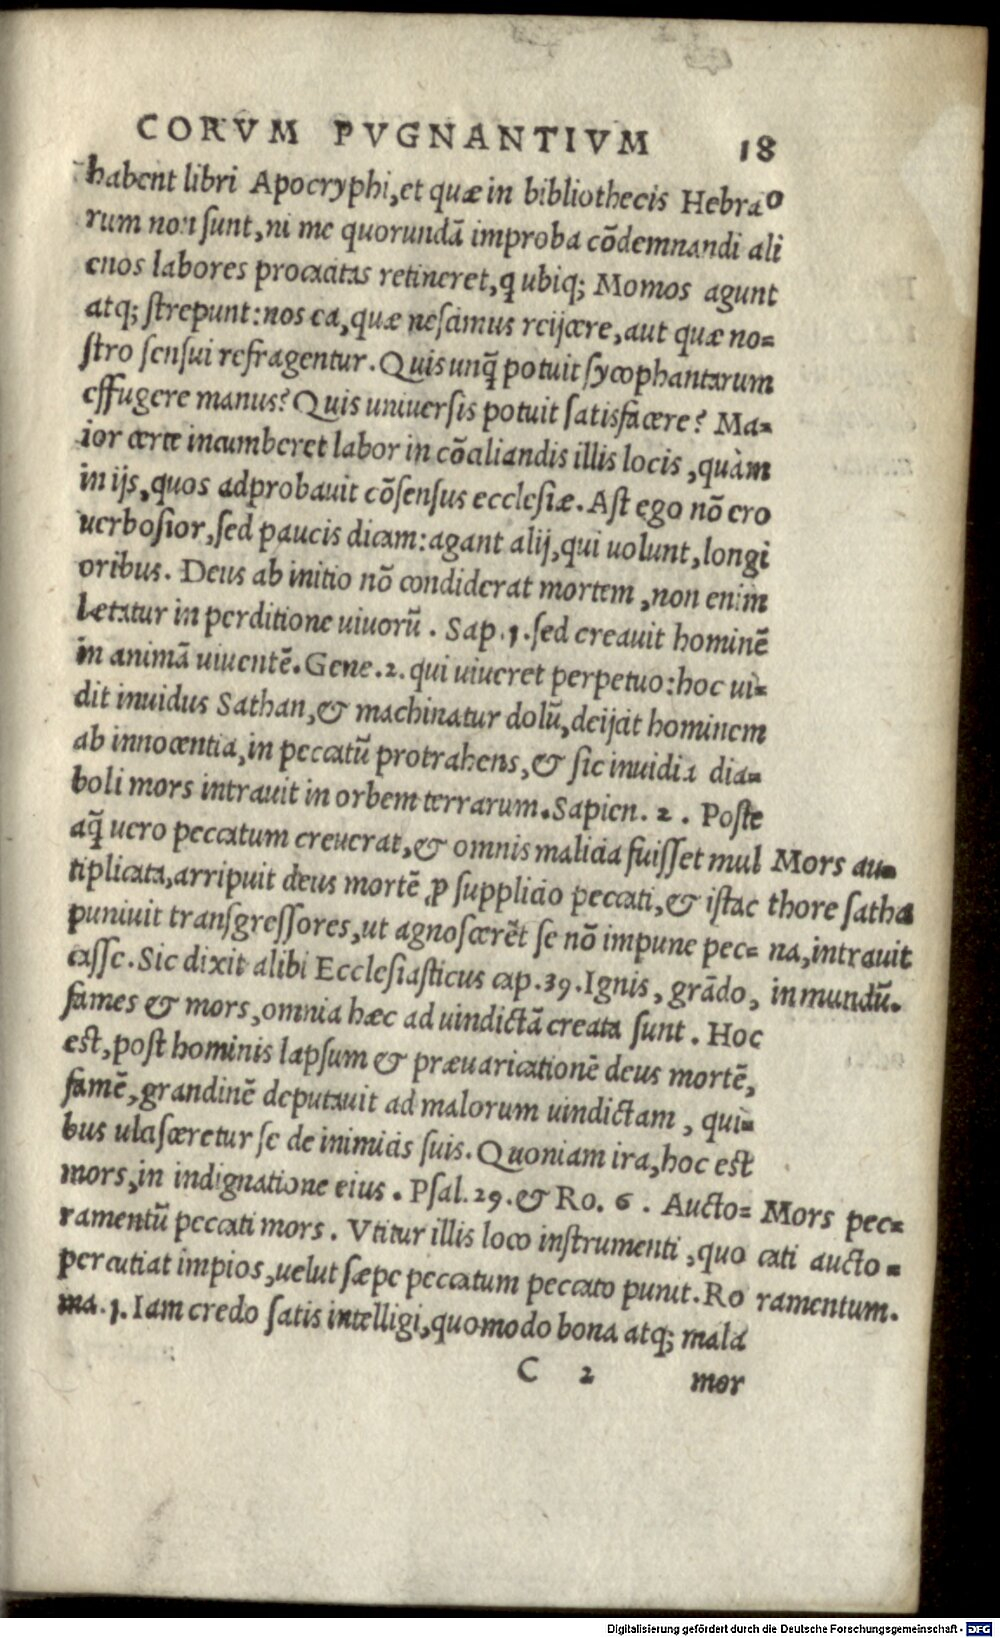 CORVM PVGNANTIVM 18
habent libri Apocryphi, et quæ in bibliothecis Hebræo
rum non sunt, ni me quorundā improba cōdemnandi ali
enos labores procacitas retineret, q̨ ubiq; Momos agunt
atq; strepunt: nos ea, quæ nescimus reijcere, aut quæ no=
stro sensui refragentur. Quis unq̃ potuit sycophantarum
effugere manus? Quis uniuersis potuit satisfacere? Ma=
ior certe incumberet labor in cōciliandis illis locis, quàm
in ijs, quos adprobauit cōsensus ecclesiæ. Ast ego nō ero
uerbosior, sed paucis dicam: agant alij, qui uolunt, longi
oribus. Deus ab initio nō condiderat mortem, non enim
letatur in perditione uiuorū. Sap. 1. sed creauit hominē
in animā uiuentē. Gene. 2. qui uiueret perpetuo: hoc ui=
dit inuidus Sathan, & machinatur dolū, deijcit hominem
ab innocentia, in peccatū protrahens, & sic inuidia dia=
boli mors intrauit in orbem terrarum. Sapien. 2. Poste
aq̃ uero peccatum creuerat, & omnis malicia fuisset mul
tiplicata, arripuit deus mortē ꝓ supplicio peccati, & istac
puniuit transgressores, ut agnoscerēt se nō impune pec=
casse. Sic dixit alibi Ecclesiasticus cap. 39. Ignis, grādo,
fames & mors, omnia hæc ad uindictā creata sunt. Hoc
est, post hominis lapsum & præuaricationē deus mortē,
famē, grandinē deputauit ad malorum uindictam, qui=
bus ulcisceretur se de inimicis suis. Quoniam ira, hoc est
mors, in indignatione eius. Psal. 29. & Ro. 6. Aucto=
ramentū peccati mors. Vtitur illis loco instrumenti, quo
percutiat impios, uelut sæpe peccatum peccato punit. Ro
ma. 1. Iam credo satis intelligi, quomodo bona atq; mala
C 2 mor
Mors au=
thore satha
na, intrauit
in mundū.
Mors pec=
cati aucto=
ramentum.
Digitalisierung gefördert durch die Deutsche Forschungsgemeinschaft - DFG